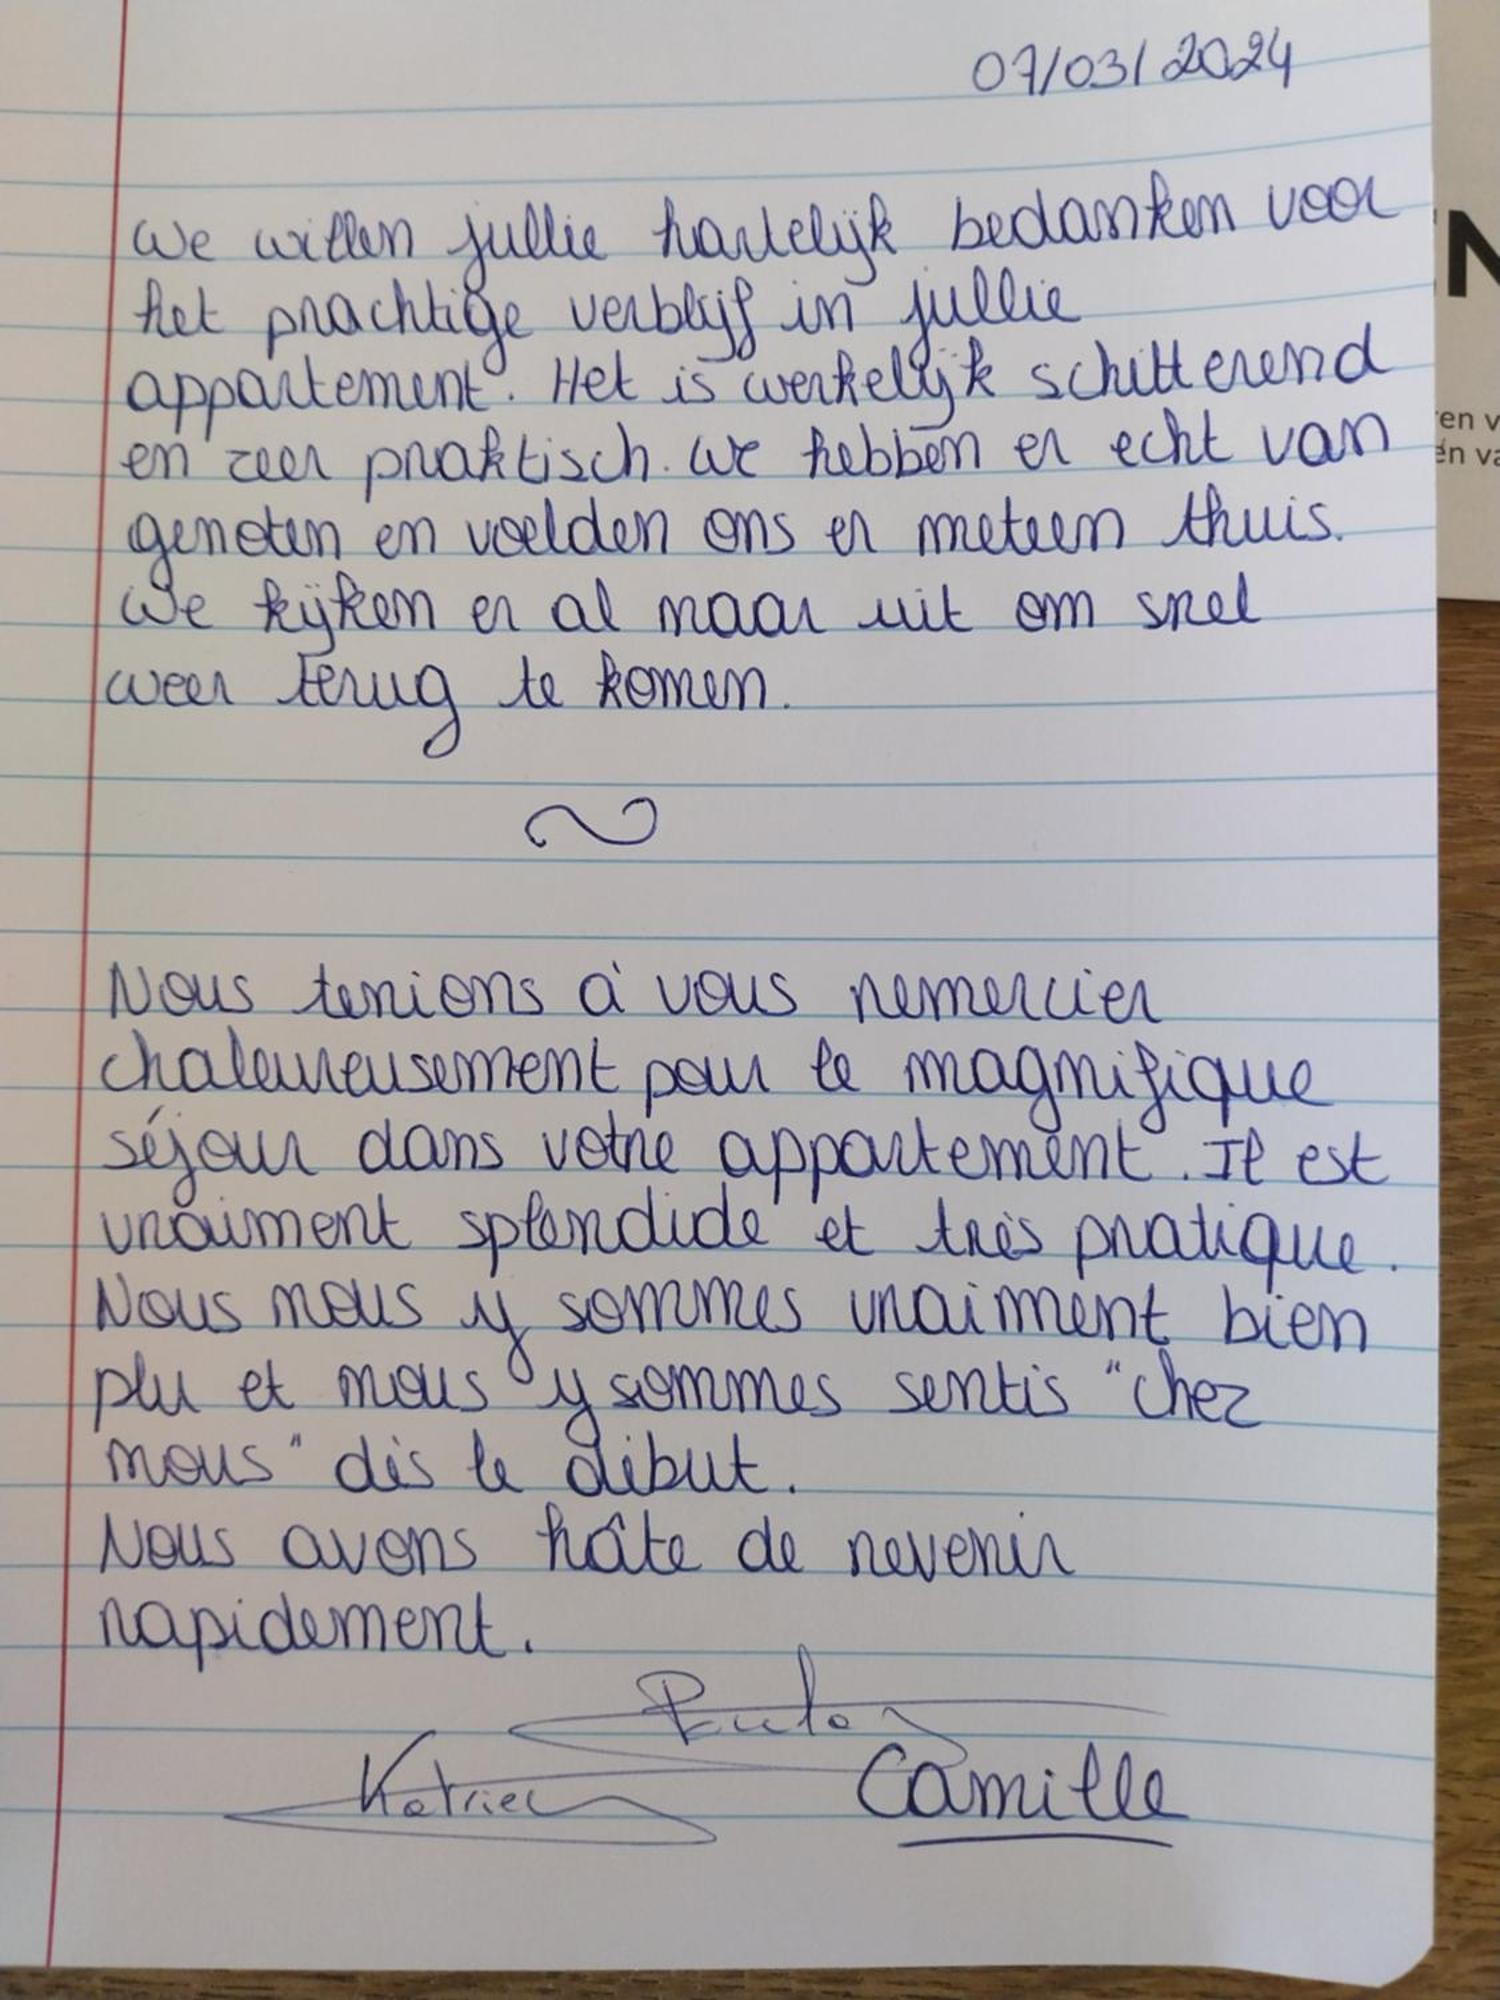 07/03/2024
We willen jullie hartelijk bedanken voor
het prachtige verblijf in jullie
appartement. Het is werkelijk schitterend
en zeer praktisch. We hebben er echt van
genoten en voelden ons er meteen thuis.
We kijken er al maar uit om snel
weer terug te komen.
Nous tenions à vous remercier
chaleureusement pour le magnifique
séjour dans votre appartement. Il est
vraiment splendide et très pratique.
Nous nous y sommes vraiment bien
plu et nous y sommes sentis "chez
nous" dès le début.
Nous avons hâte de revenir
rapidement.
Katrien
Camille
N
en v
en va